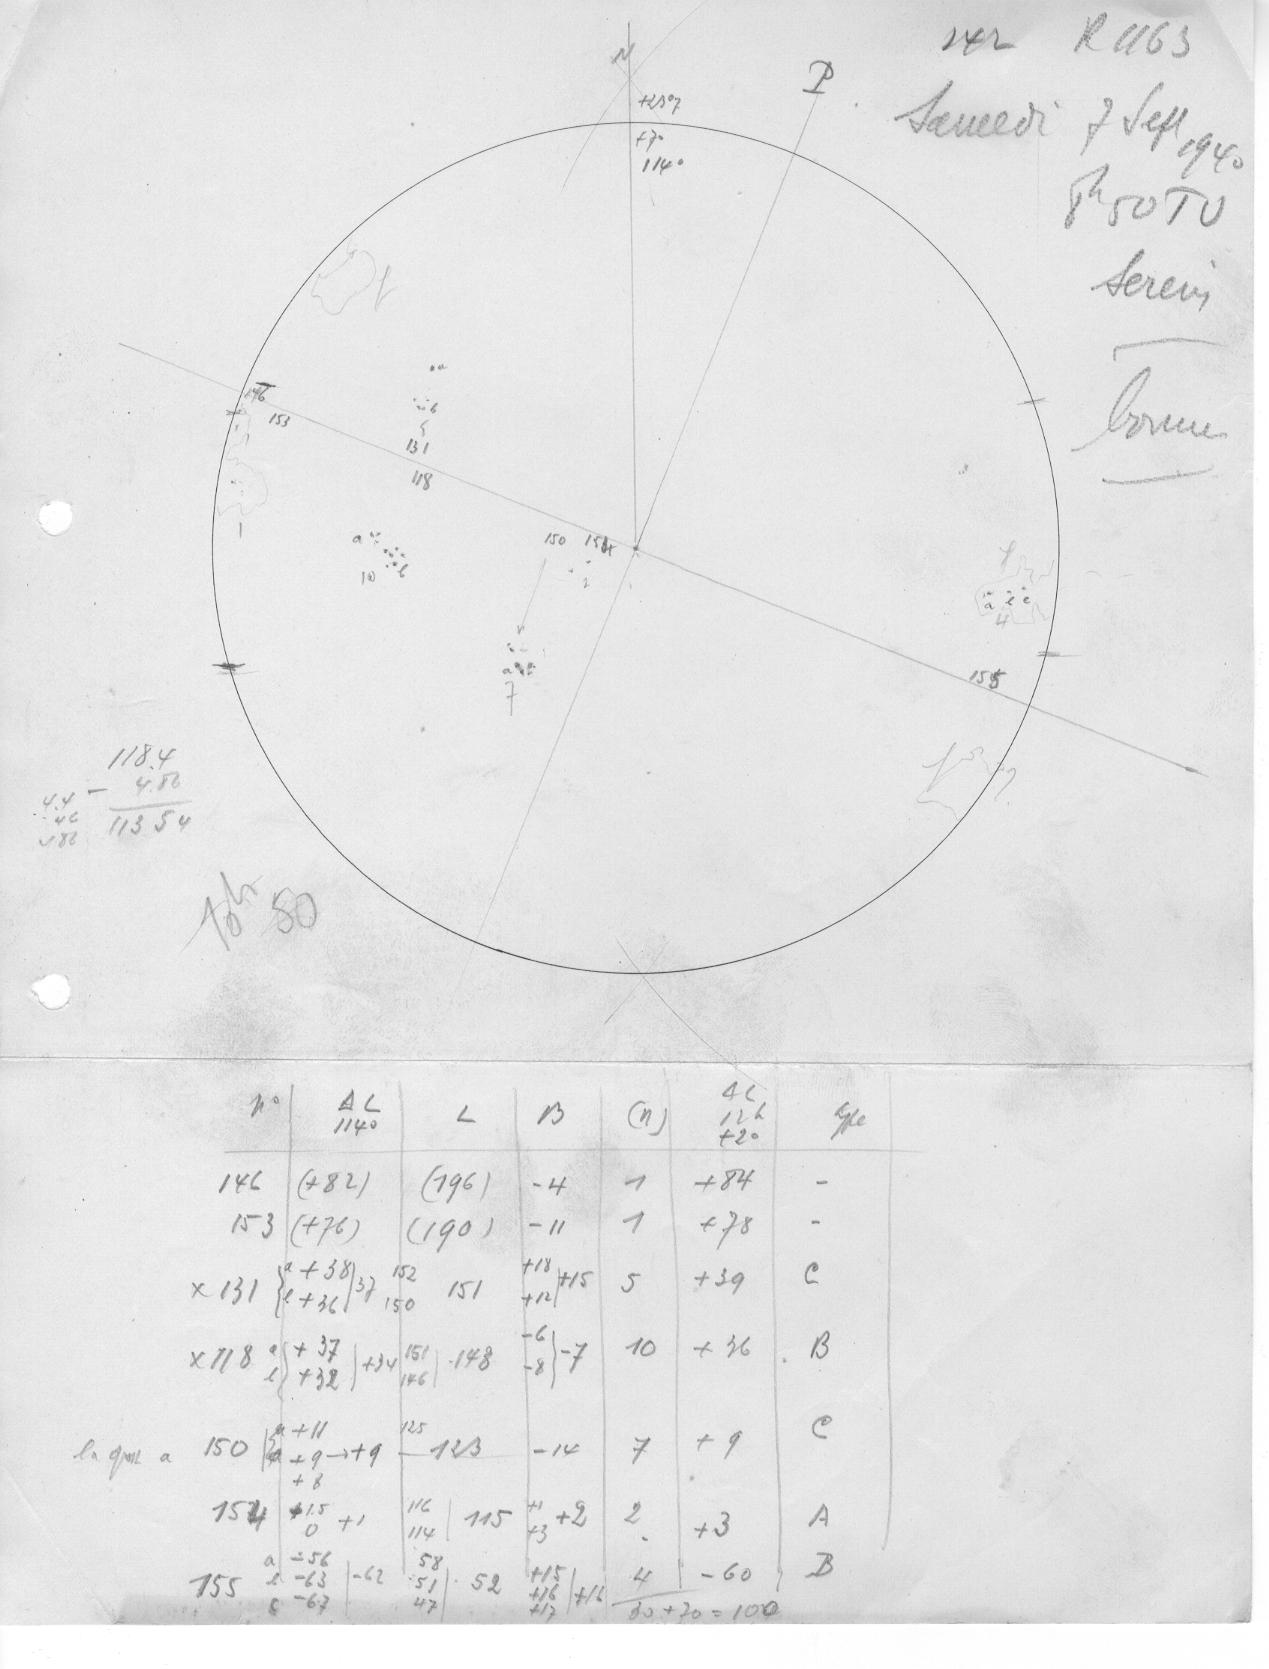 R 1163
Samedi 7 Sept 1940
8h 50 TU
Serein
bonne
N
P
+7°
114°
146
153
a
b
5
131
118
1
a
b
10
150 154
2
a
7
f
a b c
4
155
118.4
4.86
4.4 −
46
486
113 54
10h 50
n° ΔL 114° L B (n) ΔL 12h +2° type
146 (+82) (196) -4 1 +84 -
153 (+76) (190) -11 1 +78 -
x 131 a +38 b +36 37 152 150 151 +18 +12 +15 5 +39 C
x 118 a +37 b +32 +34 151 146 148 -6 -8 -7 10 +36 B
150 a +11 +9 → +9 +8 125 123 -14 7 +9 C
154 +1.5 0 +1 116 114 115 +1 +3 +2 2 +3 A
155 a -56 b -63 c -67 -62 58 51 47 52 +15 +16 +17 +16 4 -60 B
30 + 70 = 100